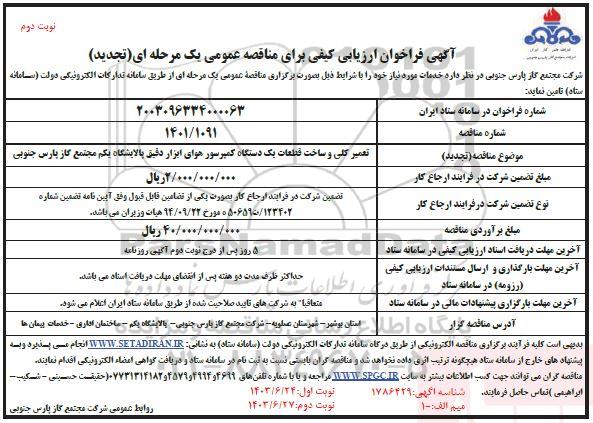 نوبت دوم
آگهی فراخوان ارزیابی کیفی برای مناقصه عمومی یک مرحله ای(تجدید)
شرکت مجتمع گاز پارس جنوبی در نظر دارد خدمات مورد نیاز خود را با شرایط ذیل بصورت برگزاری مناقصه عمومی یک مرحله ای از طریق سامانه تدارکات الکترونیکی دولت (سامانه
ستاد) تامین نماید:
شماره فراخوان در سامانه ستاد ایران
۲۰۰۳۰۹۶۳۳۴۰۰۰۰۶۳
شماره مناقصه
۱۴۰۱/۱۰۹۱
موضوع مناقصه(تجدید)
تعمیر کلی و ساخت قطعات یک دستگاه کمپرسور هوای ابزار دقیق پالایشگاه یکم مجتمع گاز پارس جنوبی
مبلغ تضمین شرکت در فرایند ارجاع کار
۲/۰۰۰/۰۰۰/۰۰۰ریال
نوع تضمین شرکت در فرایند ارجاع کار
تضمین شرکت در فرایند ارجاع کار بصورت یکی از تضامین قابل قبول وفق آیین نامه تضمین شماره
۱۲۳۴۰۲/ت۵۰۶۵۹ ه مورخ ۹۴/۰۹/۲۲ هیات وزیران می باشد.
مبلغ برآوردی مناقصه
۴۰/۰۰۰/۰۰۰/۰۰۰ ریال
آخرین مهلت دریافت اسناد ارزیابی کیفی در سامانه ستاد
۵ روز پس از درج نوبت دوم آگهی روزنامه
آخرین مهلت بارگذاری و ارسال مستندات ارزیابی کیفی
(رزومه) در سامانه ستاد
حداکثر ظرف مدت دو هفته پس از انقضای مهلت دریافت اسناد می باشد.
آخرین مهلت بارگزاری پیشنهادات مالی در سامانه ستاد
متعاقبا" به شرکت های تایید صلاحیت شده از طریق سامانه ستاد ایران اعلام می شود.
آدرس مناقصه گزار
استان بوشهر – شهرستان عسلویه – شرکت مجتمع گاز پارس جنوبی – پالایشگاه یکم – ساختمان اداری – خدمات پیمان ها
بدیهی است کلیه فرآیند برگزاری مناقصه الکترونیکی از طریق درگاه سامانه تدارکات الکترونیکی دولت (سامانه ستاد) به نشانی: WWW.SETADIRAN.IR انجام می پذیرد وبسه
پیشنهاد های خارج از سامانه ستاد هیچگونه ترتیب اثری داده نخواهد شد و مناقصه گران بایستی نسبت به ثبت نام در سامانه ستاد و دریافت گواهی امضاء الکترونیکی اقدام نمایند.
مناقصه گران می توانند جهت کسب اطلاعات بیشتر به سایت WWW.SPGC.IR مراجعه و یا با شماره تلفن های ۴۶۹۹و۴۹۹۴و۴۵۷۹و۰۷۷۳۱۳۱۴۱۸۲(حقیقت حسینی – شکیب –
ابراهیمی )تماس حاصل فرمایند.
شناسه آگهی: ۱۷۸۶۴۲۹
نوبت اول:۱۴۰۳/۶/۲۴
میم الف:۱۰
نوبت دوم:۱۴۰۳/۶/۲۷
روابط عمومی شرکت مجتمع گاز پارس جنوبی
ParsNamadData